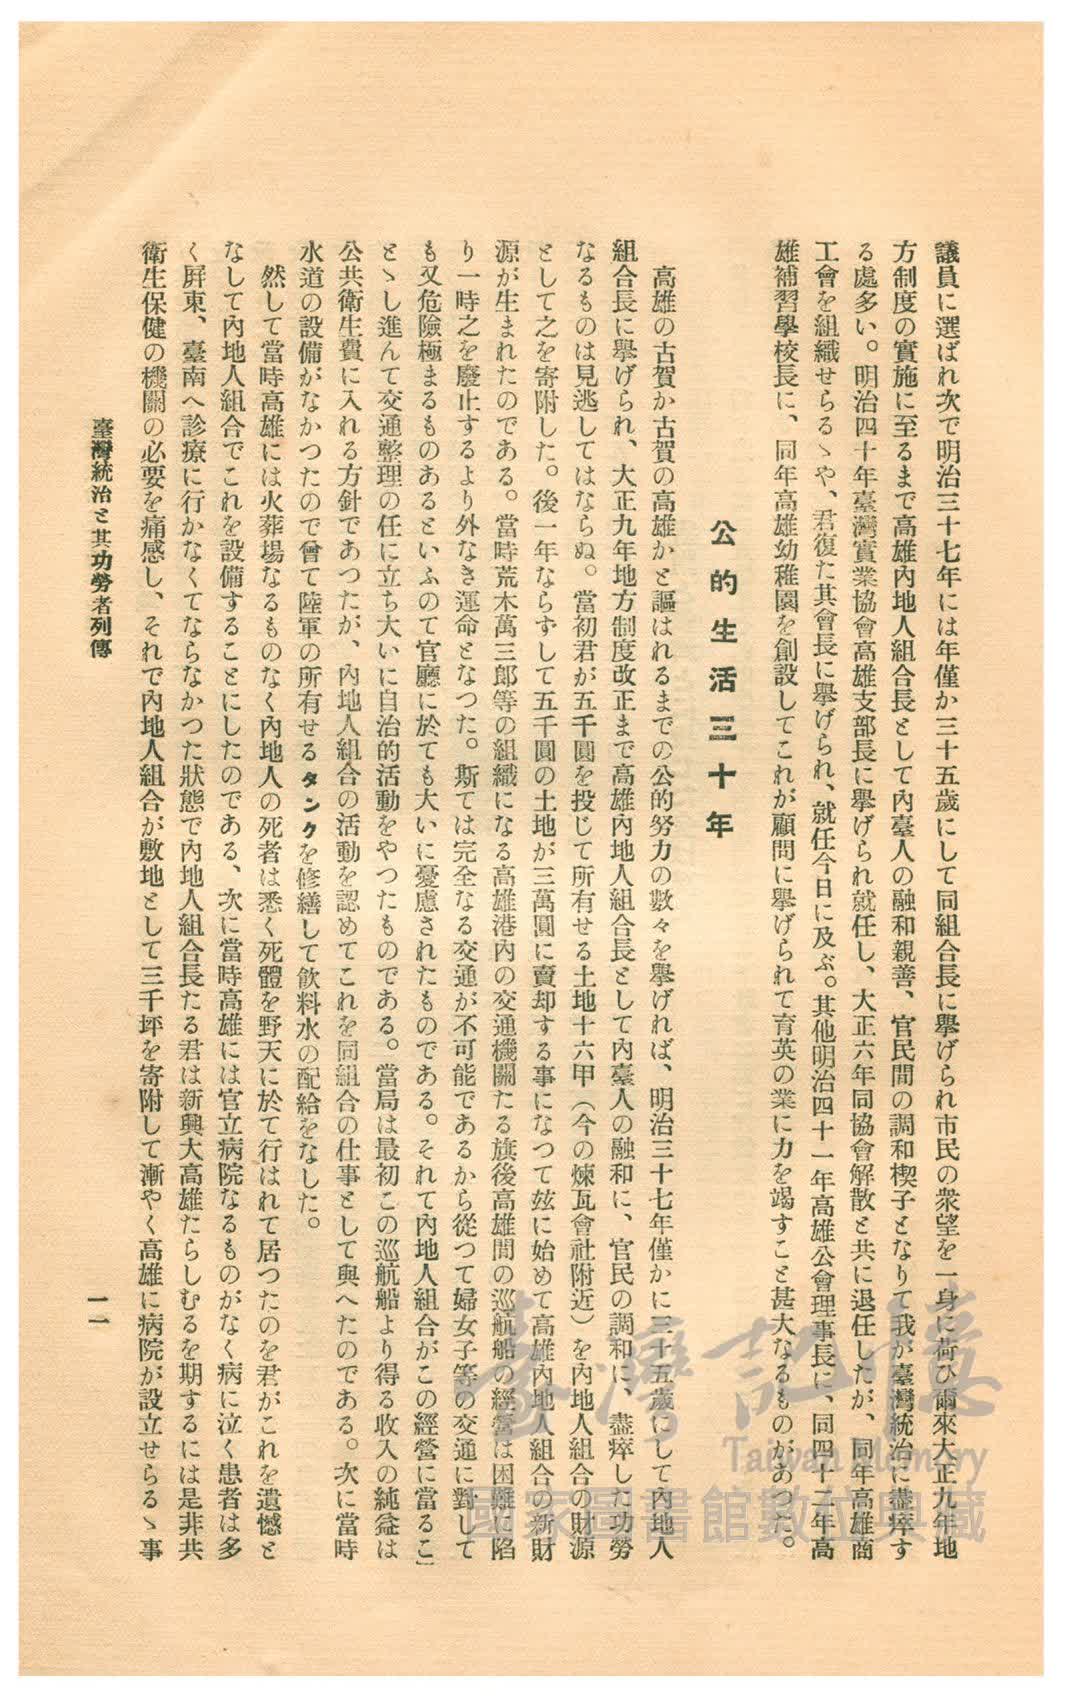 議員に選ばれ次で明治三十七年には年僅か三十五歳にして同組合長に擧げられ市民の衆望を一身に荷ひ爾來大正九年地
方制度の實施に至るまで高雄內地人組合長として內臺人の融和親善、官民間の調和楔子となりて我が臺灣統治に盡瘁す
る處多い。明治四十年臺灣實業協會高雄支部長に擧げられ就任し、大正六年同協會解散と共に退任したが、同年高雄商
工會を組織せらるゝや、君復た其會長に擧げられ、就任今日に及ぶ。其他明治四十一年高雄公會理事長に、同四十二年高
雄補習學校長に、同年高雄幼稚園を創設してこれが顧問に擧げられて育英の業に力を竭すこと甚大なるものがあつた。
公的生活三十年
高雄の古賀か古賀の高雄かと謳はれるまでの公的努力の數々を擧げれば、明治三十七年僅かに三十五歳にして內地人
組合長に擧げられ、大正九年地方制度改正まで高雄內地人組合長として內臺人の融和に、官民の調和に、盡瘁した功勞
なるものは見逃してはならぬ。當初君が五千圓を投じて所有せる土地十六甲（今の煉瓦會社附近）を內地人組合の財源
として之を寄附した。後一年ならずして五千圓の土地が三萬圓に賣却する事になつて玆に始めて高雄內地人組合の新財
源が生まれたのである。當時荒木萬三郎等の組織になる高雄港內の交通機關たる旗後高雄間の巡航船の經營は困難に陷
り一時之を廢止するより外なき運命となつた。斯ては完全なる交通が不可能であるから從つて婦女子等の交通に對して
も又危險極まるものあるといふので官廳に於ても大いに憂慮されたものである。それで內地人組合がこの經營に當るこ
とゝし進んで交通整理の任に立ち大いに自治的活動をやつたものである。當局は最初この巡航船より得る收入の純益は
公共衛生費に入れる方針であつたが、內地人組合の活動を認めてこれを同組合の仕事として與へたのである。次に當時
水道の設備がなかつたので曾て陸軍の所有せるタンクを修繕して飮料水の配給をなした。
然して當時高雄には火葬場なるものなく內地人の死者は悉く死體を野天に於て行はれて居つたのを君がこれを遺憾と
なして內地人組合でこれを設備することにしたのである、次に當時高雄には官立病院なるものがなく病に泣く患者は多
く屛東、臺南へ診療に行かなくてならなかつた狀態で內地人組合長たる君は新興大高雄たらしむるを期するには是非共
衛生保健の機關の必要を痛感し、それで內地人組合が敷地として三千坪を寄附して漸やく高雄に病院が設立せらるゝ事
臺灣統治と其功勞者列傳
一一
臺灣記憶
Taiwan Memory
國家圖書館數位典藏